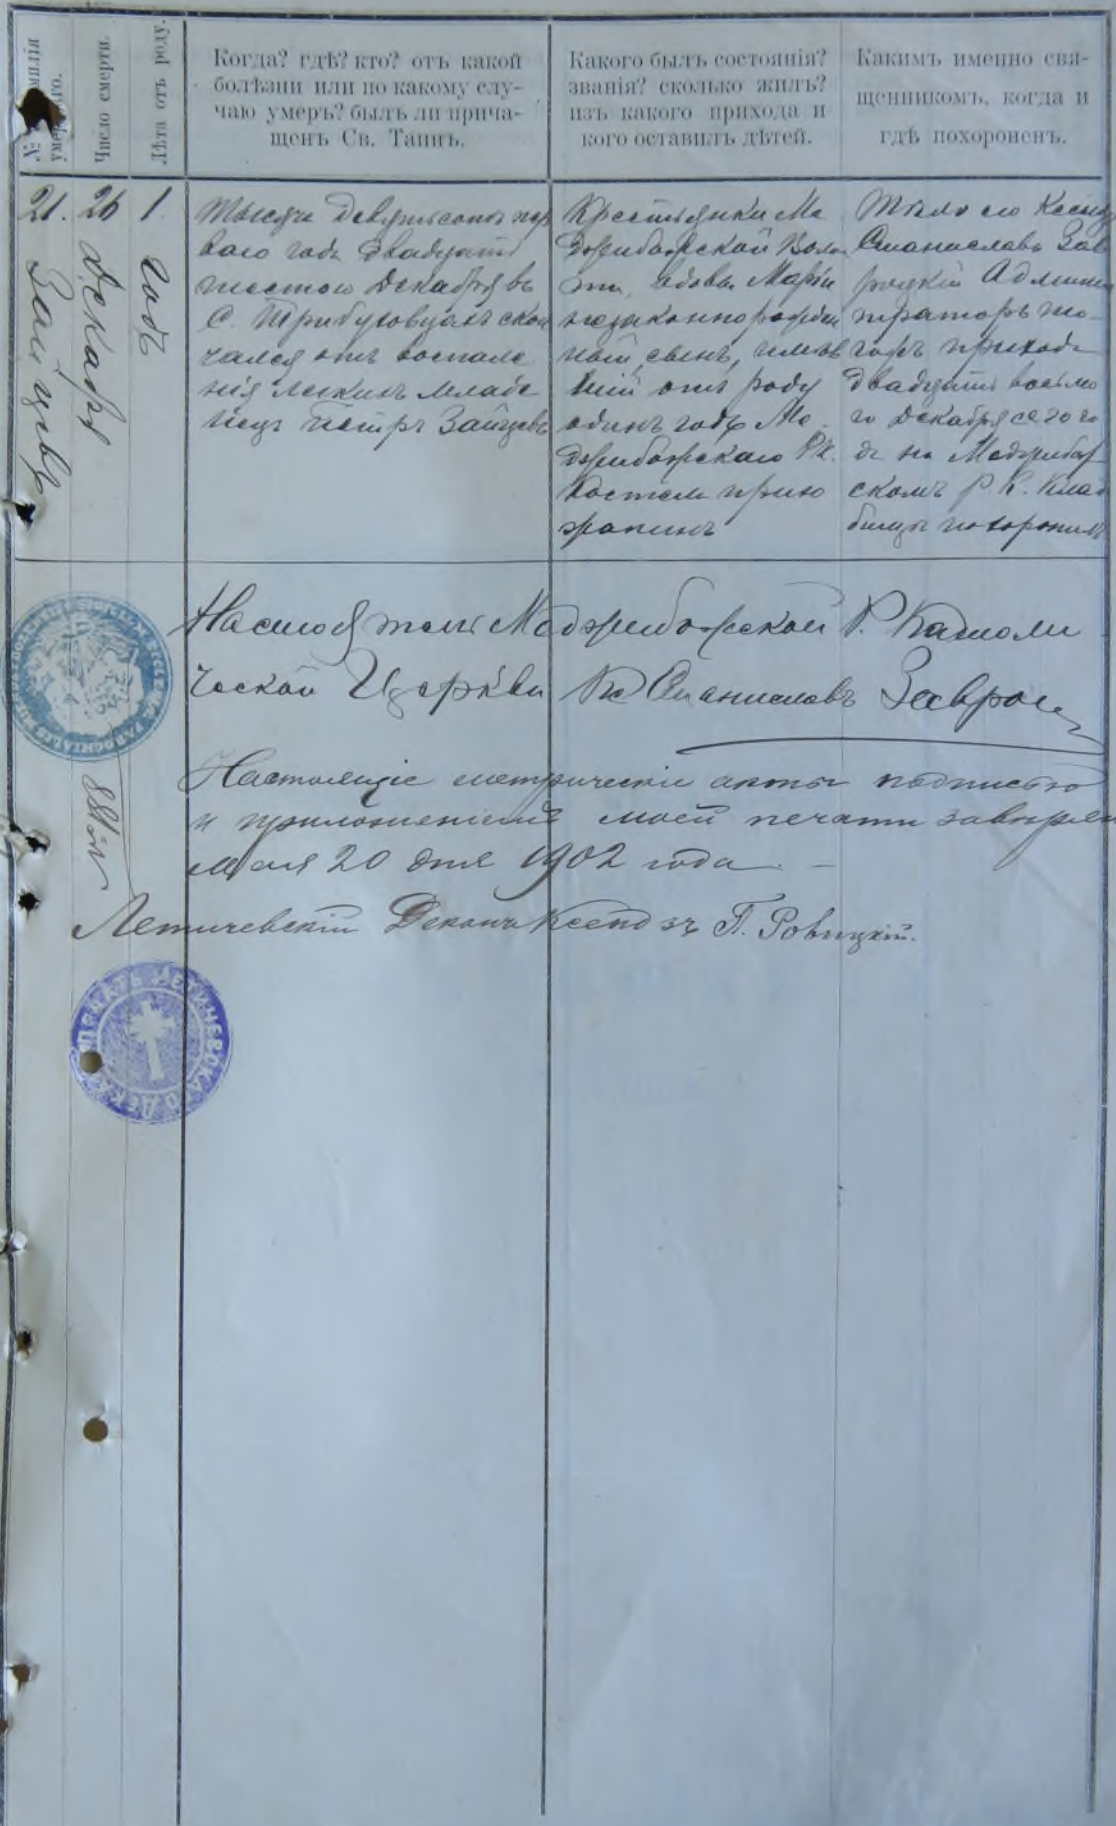 № фамилія
умершаго.
Число смерти.
Лѣта отъ роду.
Когда? гдѣ? кто? отъ какой
болѣзни или по какому слу-
чаю умеръ? былъ ли прича-
щенъ Св. Таинъ.
Какого былъ состоянія?
званія? сколько жилъ?
изъ какого прихода и
кого оставилъ дѣтей.
Какимъ именно свя-
щенникомъ, когда и
гдѣ похороненъ.
21.
Зайцевъ
26
Декабря
1
Годъ
Тысяча девятьсотъ пер
ваго года двадцать
шестого Декабря въ
С. Требуховцахъ скон
чался отъ воспале
нія легкихъ младе
нецъ Петръ Зайцевъ
Крестьянки Ме
джибожской Воло
сти, вдовы Маріи
незаконнорожден
ный сынъ, имѣв
шій отъ роду
одинъ годъ Ме
джибожскаго Р.К.
Костела прихо
жанинъ
Тѣло его Ксендз
Станиславъ Зав
роцкій Админис
траторъ то-
гожъ прихода
двадцать восьмо
го Декабря сего го
да на Меджибож
скомъ Р. К. Клад
бищѣ похоронилъ
Настоятель Меджибожской Р. Католи
ческой Церкви Кс Станиславъ
Настоящіе метрическіе акты подписью
и приложеніемъ моей печати завѣряю
Мая 20 дня 1902 года. –
Летичевскій Деканъ Ксендзъ П. Ровицкій.
ПЕЧАТЬ ЛЕТИЧЕВСКАГО ДЕК